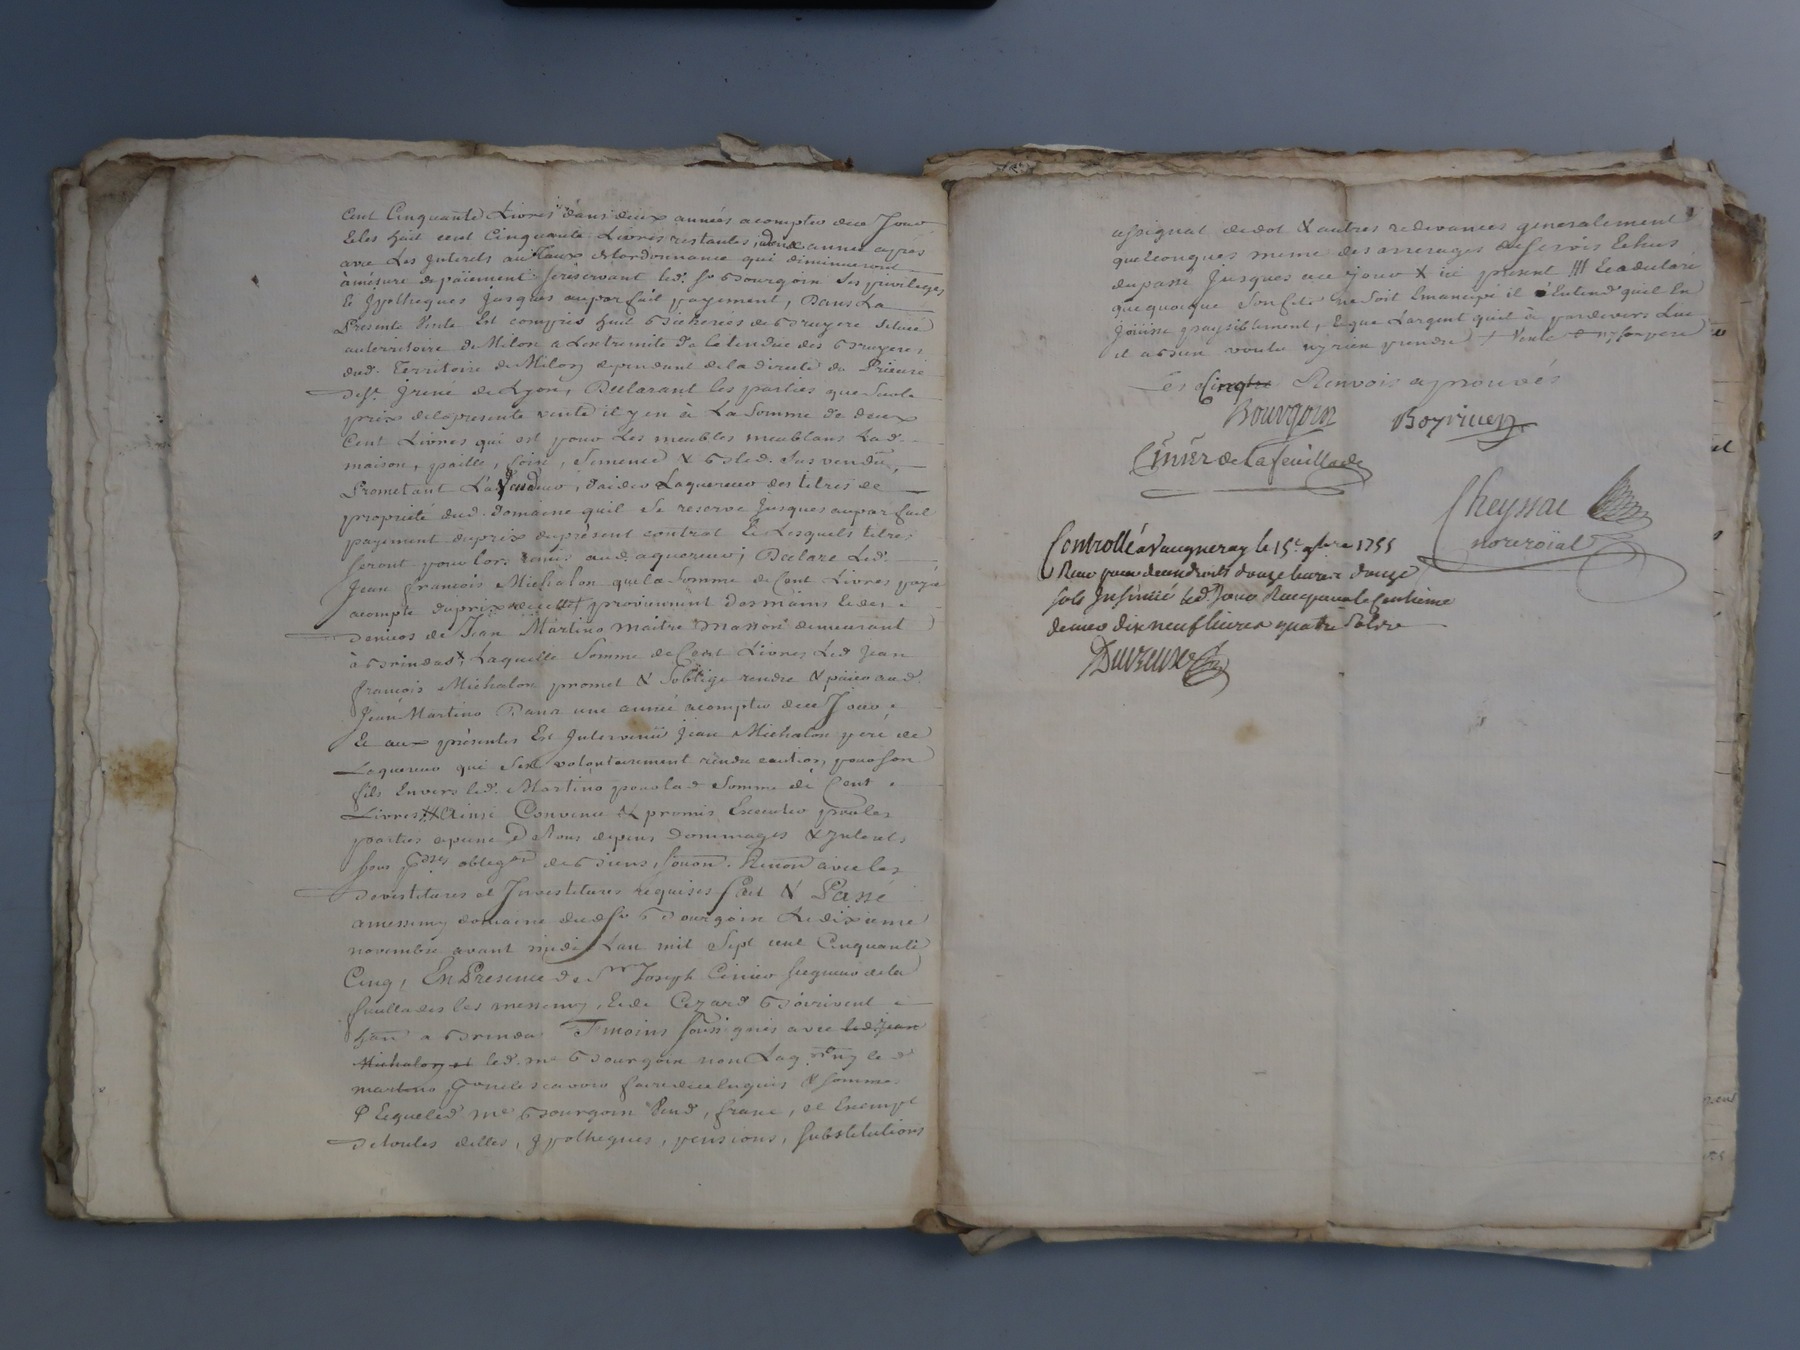 Cent Cinquante Livres dans deux années acompter dece Jour
Et les huit cent Cinquante Livres restantes, deux années après
avec Les Interets au Taux de lordonnance qui diminueront
àmésure de païement se réservant led. Sr Bourgoin Ses privileges
Et hypotheques Jusques au parfait payement, Dans La
Presente Vente Est compris huit Bicherées de Bruyere Situées
au territoire de Milon a Lextremité de la tendue des Bruyeres
dud. Territoire de Milon dependant de la directe du Prieuré
de St. Irené de Lyon, Declarant les parties que Surle
prix de la presente vente il y en à La Somme de deux
Cent Livres qui est pour Les meubles meublans Lad.
maison, paille, foin, Semence & Bled. Sus vendus,
Prometant Led. Vendeur, daider Laquereur des titres de
propriété dud. domaine quil Se reserve Jusques auparfait
payement duprix duprésent contrat Et Lesquels titres
Seront pour lors remis aud. aquereur; Declare Led.
Jean françois Michalon que la Somme de Cent Livres payé
acompte du prix provienent des mains Et des
deniers de Jean Martino maitre masson demeurant
à Brindas Laquelle Somme de Cent Livres Led. Jean
françois Michalon promet & Soblige rendre & païer aud.
Jean Martino Dans une année acompter dece Jour
Et aux présentes Est Intervenü Jean Michalon pere de
Laquereur qui Sest volontairement rendu caution, pour Son
fils Envers led. Martino pour lad. Somme de Cent
Livres Ainsi Convenu & promis Executer par les
parties apeine de tous depens, Dommages & Interets
Sous obligon de Biens, Soum. Renon. avec les
devestitures et Investitures requises fait & Passé
amessimy domaine dud. Sr Bourgoin Le dixieme
novembre avant midi Lan mil Sept cent Cinquante
Cinq, En Presence de Sr Joseph Cinier Seigneur dela
feuillade les messimy, Et de Cezard Boivivent
hant a Brindas Temoins Soussignés avec led. Jean
Michalon et led. me Bourgoin non Laq. ny led.
martino pour ne scavoir faire de ce Enquis & Sommés
& Et que led. me Bourgoin Vend, franc, et Exempt
de toutes dettes, hypotheques, pensions, Substitutions
assignat de dot & autres redevances generalement
quelconques meme des arrerages de Servis Echus
du passé Jusques ace jour & ici présent /// Et a declaré
que quoique Son fils ne Soit Emancipé il Entend quil En
joüisse paysiblement, & que Largent quil à pardevers Lui
il a Bien voulu ny rien prendre
Les Cinq Renvois aprouvés
Bourgoin Boyvivent
Cinier de la feuillade
Cheyssac
no. roïal
Controllé a Vaugneray le 15e 9bre 1755
Recu pour deux droits douze livres douze
sols Insinüé led. Jour Recu pour le Centieme
denier dix neuf livres quatre Sols